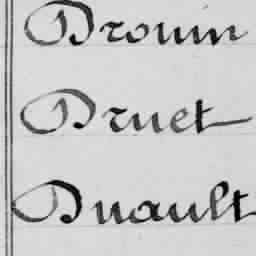 Drouin
Druet
Duault